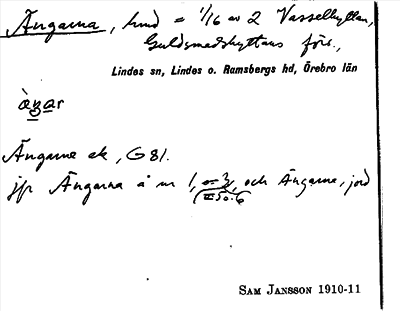 Ängarna, hmd = 1/16 av 2 Vasselhyttan,
Guldsmedshyttans förs.,
Lindes sn, Lindes o. Ramsbergs hd, Örebro län
àŋar
Ängarne ek, G 81.
jfr Ängarna å nr 1, och Ängarne, jord
SAM JANSSON 1910-11